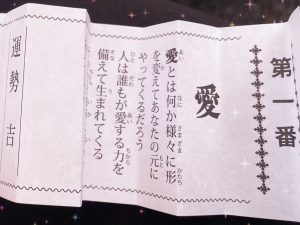 第一番
愛
愛とは何か様々に形
を変えてあなたの元に
やってくるだろう
人は誰もが愛する力を
備えて生まれてくる
運勢 吉